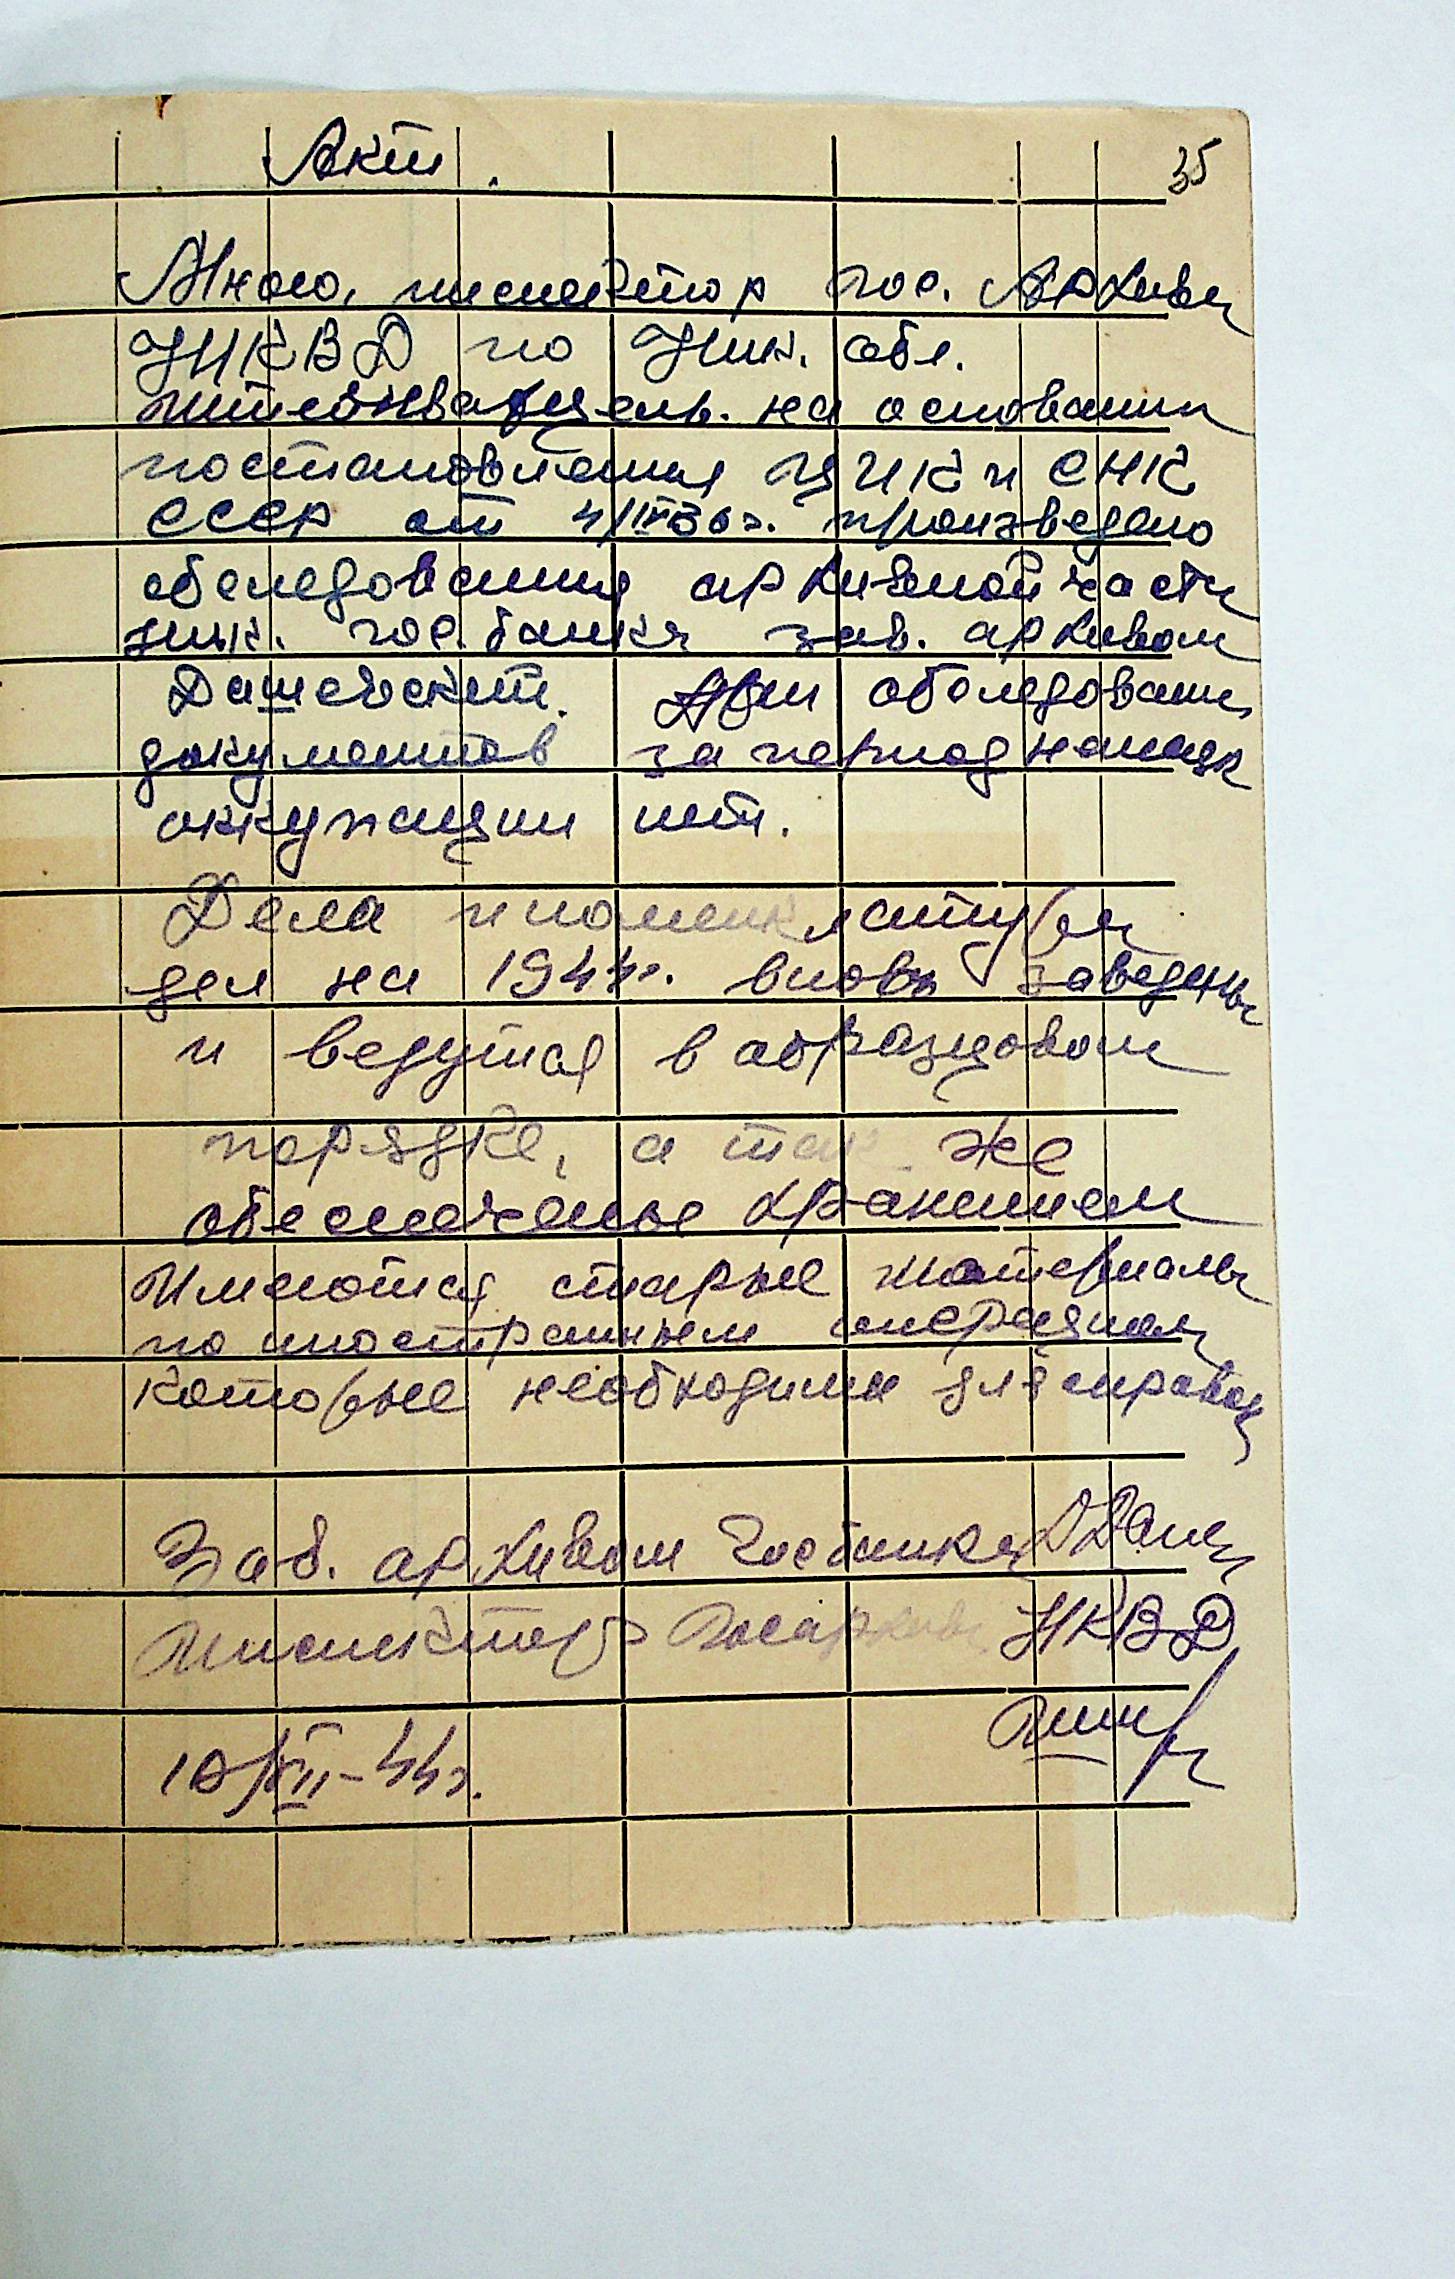 Акт.
35
Мною, инспектор гос. Архива
УНКВД по Ник. обл.
на основании
постановления ЦИК и СНК
СССР от 4/IV 36 г. произведено
обследования архивной части
Ник. гос. банка зав. архивом
При обследовании
документов за период немецк
оккупации нет.
Дела и номенклатура
дел на 1944 г. вновь заведены
и ведутся в образцовом
порядке, а так же
обеспечены хранением
Имеются старые материалы
по иностранным операциям
которые необходимы для справок
Зав. архивом Госбанка
Инспектор Госархива НКВД
10/XII-44 г.